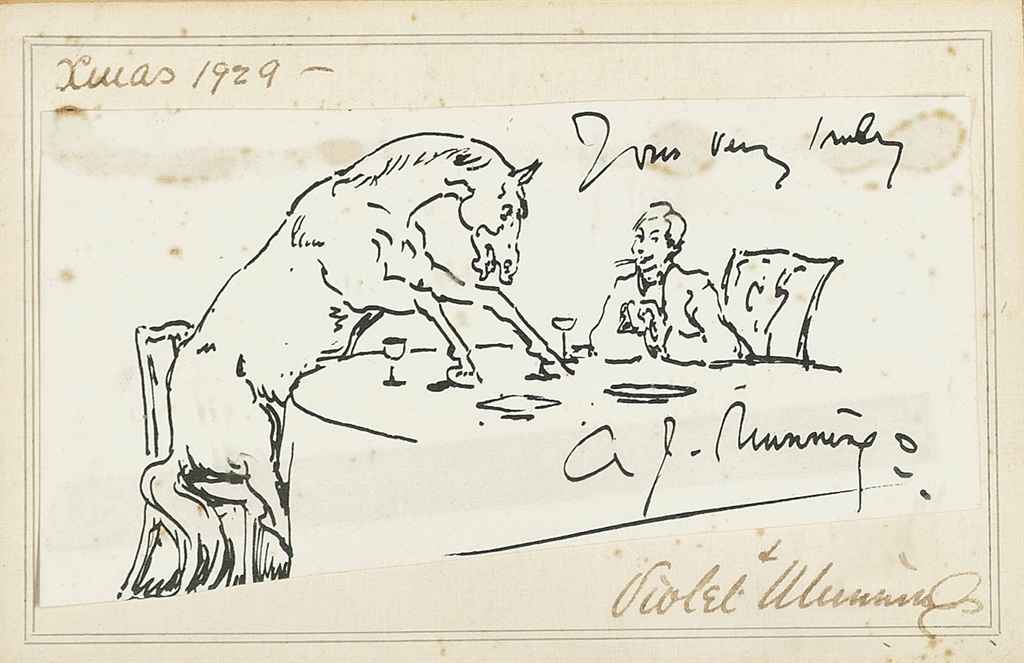 Xmas 1929 —
Yours very truly
A J. Munnings
& Violet Munnings